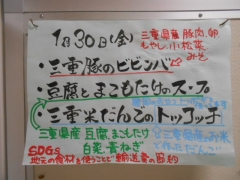 1月30日(金)
三重県産豚肉、卵
もやし、小松菜、
みそ
・三重豚のビビンバ
・豆腐とまこもたけのスープ
・三重米だんごのトッポッチ
三重県産豆腐、まこもたけ
白菜、青ねぎ
三重県産のお米
で作っただんご
SDGs
地元の食材を使うことで輸送費の節約